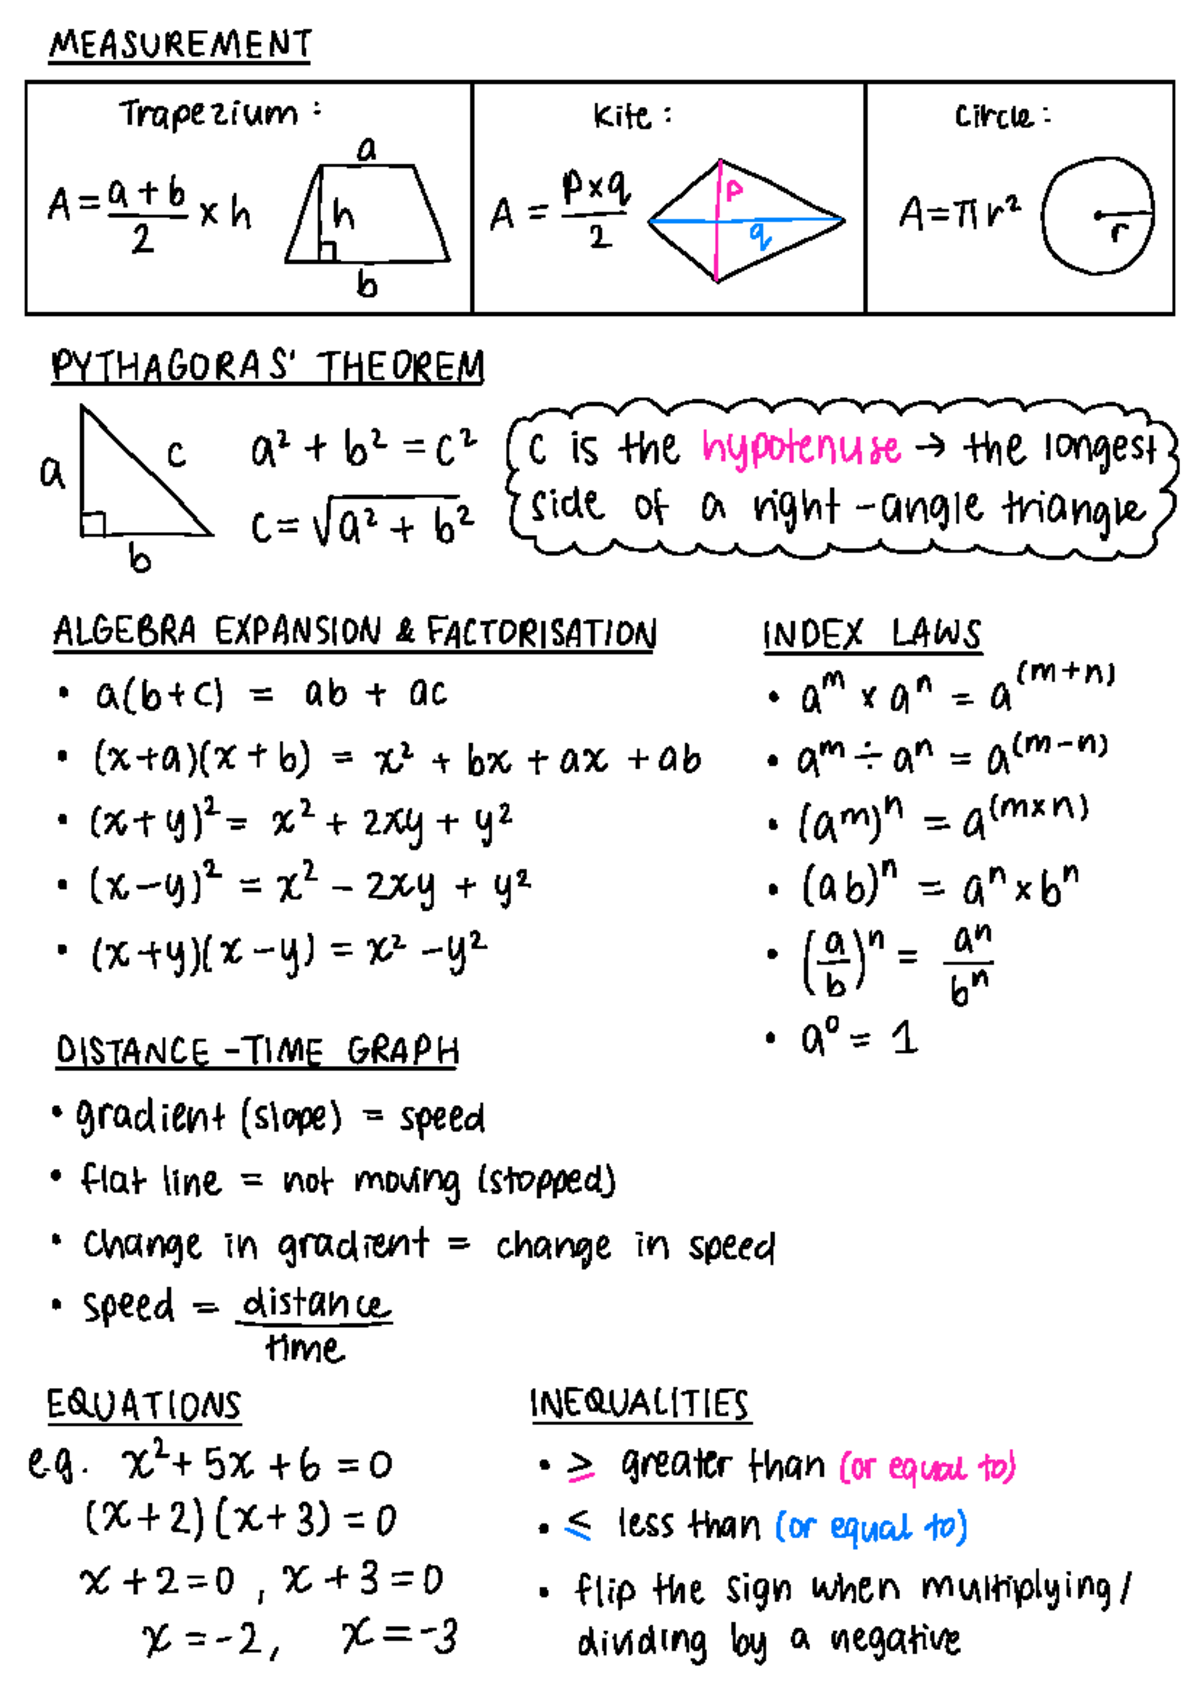 MEASUREMENT
Trapezium :
A = a + b / 2 × h
a
h
b
Kite :
A = p×q / 2
p
q
Circle :
A = πr²
r
PYTHAGORAS' THEOREM
a
c
b
a² + b² = c²
c = √a² + b²
c is the hypotenuse → the longest
side of a right-angle triangle
ALGEBRA EXPANSION & FACTORISATION
• a(b+c) = ab + ac
• (x+a)(x+b) = x² + bx + ax + ab
• (x+y)² = x² + 2xy + y²
• (x-y)² = x² - 2xy + y²
• (x+y)(x-y) = x² - y²
INDEX LAWS
• aᵐ × aⁿ = a⁽ᵐ⁺ⁿ⁾
• aᵐ ÷ aⁿ = a⁽ᵐ⁻ⁿ⁾
• (aᵐ)ⁿ = a^(m×n)
• (ab)ⁿ = aⁿ × bⁿ
• (a/b)ⁿ = aⁿ/bⁿ
• a⁰ = 1
DISTANCE-TIME GRAPH
• gradient (slope) = speed
• flat line = not moving (stopped)
• change in gradient = change in speed
• speed = distance
time
EQUATIONS
e.g. x² + 5x + 6 = 0
(x+2)(x+3) = 0
x+2=0, x+3=0
x = -2, x = -3
INEQUALITIES
• ≥ greater than (or equal to)
• ≤ less than (or equal to)
• flip the sign when multiplying/
dividing by a negative